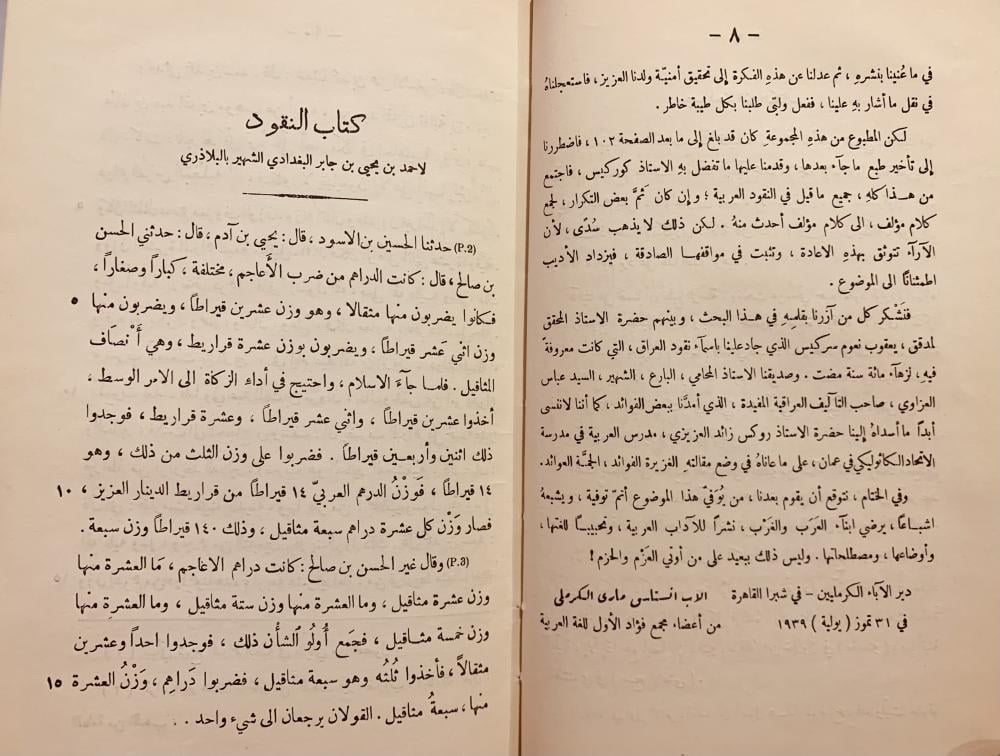 – ٨ –
في ما عُنينا بنشرهِ ، ثم عدلنا عن هذهِ الفكرة إلى تحقيق أمنيّة ولدنا العزيز ، فاستعجلناهُ
في نقل ما أشار بهِ علينا ، ففعل ولبّى طلبنا بكل طيبة خاطر .
لكن المطبوع من هذهِ المجموعةِ كان قد بلغ إلى ما بعد الصفحة ١٠٢ ، فاضطررنا
إلى تأخير طبع ما جآء بعدها ، وقدمنا عليها ما تفضل بهِ الاستاذ كوركيس ، فاجتمع
من هــذا كلهِ ، جميع ما قيل في النقود العربية ؛ و إن كان ثَمَّ بعض التكرار ، لجمع
كلام مؤلف ، الى كلام مؤلف أحدث منهُ . لـكن ذلك لا يذهب سُدًى ، لأن
الآرآء تتوثق بهـذهِ الاعادة ، وتثبت في مواقفهـا الصادقة ، فيزداد الأديب
اطمئنانًا الى الموضوع .
فنَشْكر كل من آزرنا بقلمِهِ في هـذا البحث ، وبينهم حضرة الاستاذ المحقق
لمدقق ، يعقوب نعوم سركيس الذي جاد علينا باسمآء نقود العراق ، التي كانت معروفةً
فيهِ ، لزهآء مائة سنة مضت . وصديقنا الاستاذ المحامي ، البارع ، الشهير ، السيد عباس
العزاوي ، صاحب التآليف العراقية المفيدة ، الذي أمدَّنا ببعض الفوائد ، كما أننا لا ننسى
أبدًا ما أسداهُ إلينا حضرة الاستاذ روكس زائد العزيزي ، مدرس العربية في مدرسة
الاتحاد الكاثوليكي في عمان ، على ما عاناهُ في وضع مقالتهِ الغزيرة الفوائد ، الجمَّة العوائد.
وفي الختام ، نتوقع أن يقوم بعدنا ، من يُوَفّيَ هذا الموضوع أتمّ توفية ، ويشبعهُ
اشبـاعًا ، يرضي ابنآء العرَب والغَرْب ، نشرًا للآداب العربية ، وتحبيبـًا للغتها ،
وأوضاعها ، ومصطلحاتها . وليس ذلك ببعيد على من أوتي العَزْم والحزم !
دير الآباء الكرمليين – في شبرا القاهرة الاب انستاس ماري الكرملي
في ٣١ تموز ( يولية ) ١٩٣٩ من أعضاء مجمع فؤاد الأول للغة العربية
كتاب النقود
لاحمد بن يحيى بن جابر البغدادي الشهير بالبلاذري
(P.2) حدثنا الحسين بن الاسود ، قال : يحيى بن آدم ، قال : حدثني الحسن
بن صالح ، قال : كانت الدراهم من ضرب الأعاجم ، مختلفة ، كبارًا وصغارًا ،
فكانوا يضربون منها مثقالا ، وهو وزن عشرين قيراطًا ، ويضربون منها ٥
وزن اثني عَشر قيراطًا ، ويضربون بوزن عشرة قراريط ، وهي أَنْصَاف
المثاقيل . فلمـا جآءَ الاسلام ، واحتيج في أداءِ الزكاة الى الامر الوسط ،
أخذوا عشرين قيراطًا ، واثني عشر قيراطًا ، وعشرة قراريط ، فوجدوا
ذلك اثنين وأربعـين قيراطًا . فضربوا على وزن الثلث من ذلك ، وهو
١٤ قيراطًا ، فَوَزْنُ الدرهم العربيّ ١٤ قيراطًا من قراريط الدينار العزيز ، ١٠
فصار وَزْن كل عشرة دراهم سبعة مثاقيل ، وذلك ١٤٠ قيراطًا وزن سبعة .
(P.3) وقال غير الحسن بن صالح : كانت دراهم الاعاجم ، مَا العشرة منها
وزن عشرة مثاقيل ، وما العشرة منها وزن ستة مثاقيل ، وما العشرةِ منها
وزن خمسة مثـاقيل ، فجمَع أُولُو الشأن ذلك ، فوجدوا احداً وعشرين
مثقالاً ، فأخذوا ثُلثَه وهو سبعة مثاقيل ، فضربوا دَراهِم ، وَزْنُ العشرة ١٥
منها ، سبعةُ مثاقيل . القولان يرجعان الى شيء واحد . .